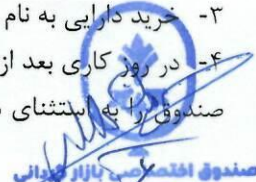 ۳- خرید دارایی به نام
۴- در روز کاری بعد از
صندوق را به استثنای
صندوق اختصاصی بازارگردانی